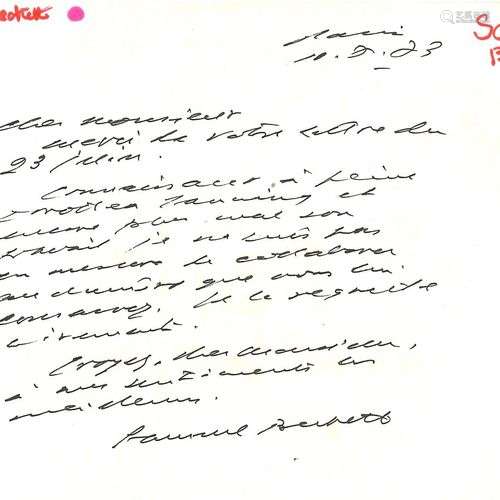 Paris
Cher Monsieur
Merci de votre lettre du
23 juin.
Connaissant à peine
Dorothea Tanning et
encore plus mal son
travail je ne suis pas
en mesure de collaborer
au numéro que vous lui
consacrez. Je le regrette
vivement.
Croyez, cher Monsieur,
à mes sentiments les
meilleurs.
Samuel Beckett